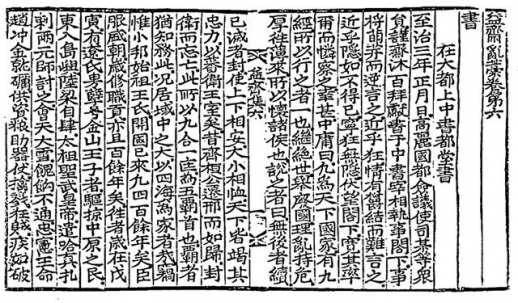 益齋亂藁卷第六
書
在大都上中書都堂書
至治三年正月日高麗國都僉議使司某等衆
貟謹齋沐百拜獻書于中書宰相執事閣下事
將萌芽而逆言之近乎狂情有蘊結而難言之
近乎隱如不得已寧狂無隱伏望閣下寬其率
爾而憐察之甚中庸曰凡爲天下國家有九
經所以行之者一也繼絶世擧廢國理亂持危
厚往薄來所以懷諸侯也說之者曰無後者續
益齋集六
已滅者封使上下相安大小相恤天下皆竭其
忠力以蕃衛王室矣昔齊桓公遷邢而如歸封
衛而忘亡此所以九合一匡爲五覇首也覇者
猶知務此况居域中之大以四海爲家者哉竊
惟小邦始祖王氏開國已來凡四百餘年矣臣
服盛朝歲修職貢亦且百餘年矣徃者歲在戊
寅有遼氏孽號金山王子者驅掠中原之民
東入島嶼陸梁自肆太祖聖武皇帝遣哈真扎
剌兩元帥討之會天大雪餽餉不通忠憲王命
趙冲金就礪供資粮助器仗擒戮狂賊疾如破